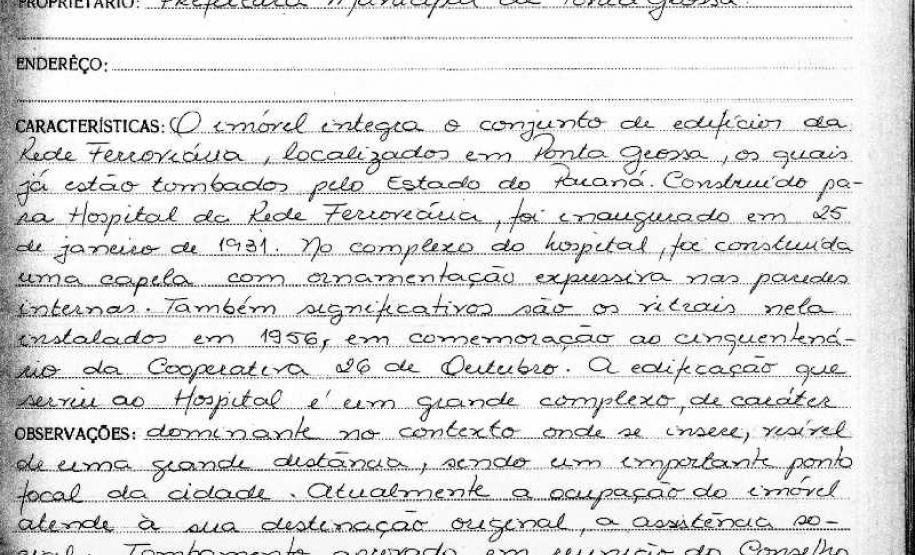 PROPRIETÁRIO: Prefeitura Municipal de Ponta Grossa.
ENDERÊÇO:
CARACTERÍSTICAS: O imóvel integra o conjunto de edifícios da
Rede Ferroviária, localizados em Ponta Grossa, os quais
já estão tombados pelo Estado do Paraná. Construído pa-
ra Hospital da Rede Ferroviária, foi inaugurado em 25
de janeiro de 1931. No complexo do hospital, foi construída
uma capela com ornamentação expressiva nas paredes
internas. Também significativos são os vitrais nela
instalados em 1956, em comemoração ao cinquentená-
rio da Cooperativa 26 de Outubro. A edificação que
serviu ao Hospital é um grande complexo, de caráter
OBSERVAÇÕES: dominante no contexto onde se insere, visível
de uma grande distância, sendo um importante ponto
focal da cidade. Atualmente a ocupação do imóvel
atende à sua destinação original, a assistência so-
cial. Tombamento aprovado em reunião do Conselho